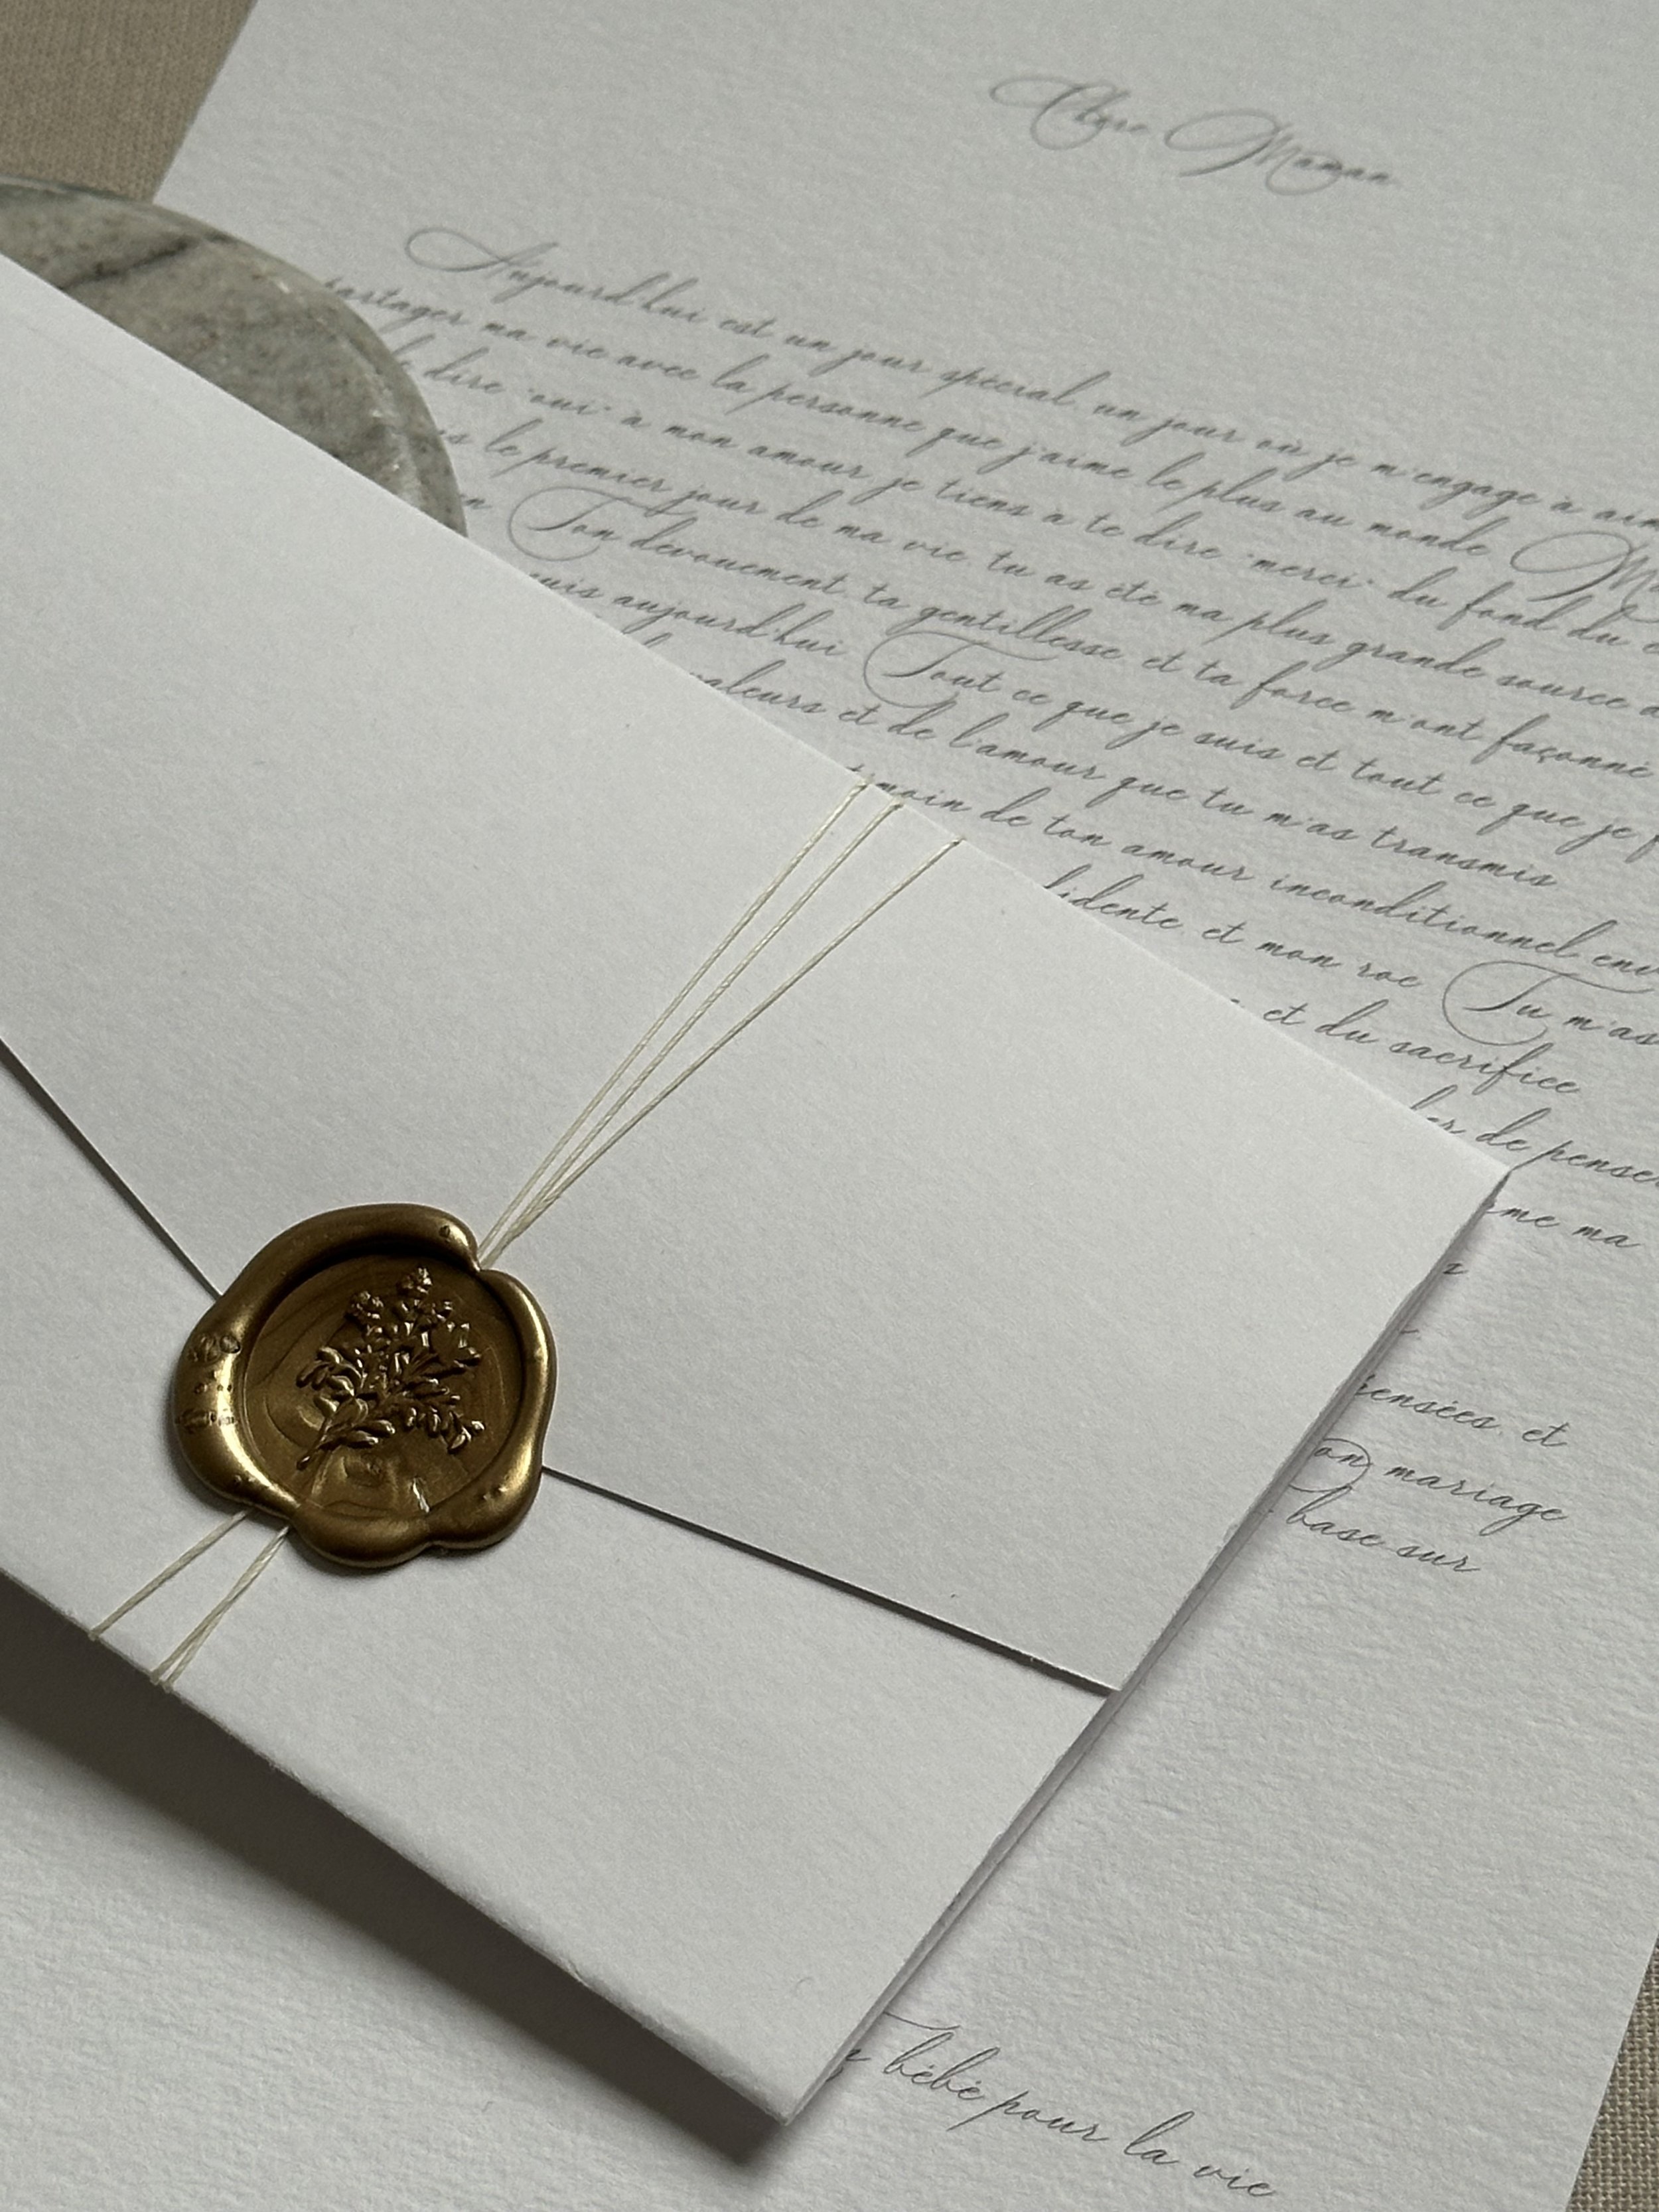 Chère Maman
Aujourd'hui est un jour spécial, un jour où je m'engage à
partager ma vie avec la personne que j'aime le plus au monde
dire "oui" à mon amour je tiens à te dire "merci" du fond du
le premier jour de ma vie, tu as été ma plus grande source
Ton dévouement, ta gentillesse et ta force m'ont façonné
suis aujourd'hui Tout ce que je suis et tout ce que je
valeurs et de l'amour que tu m'as transmis
de ton amour inconditionnel
et mon roc Tu m'as
et du sacrifice
de
ma
et
mariage
base sur
bébé pour la vie